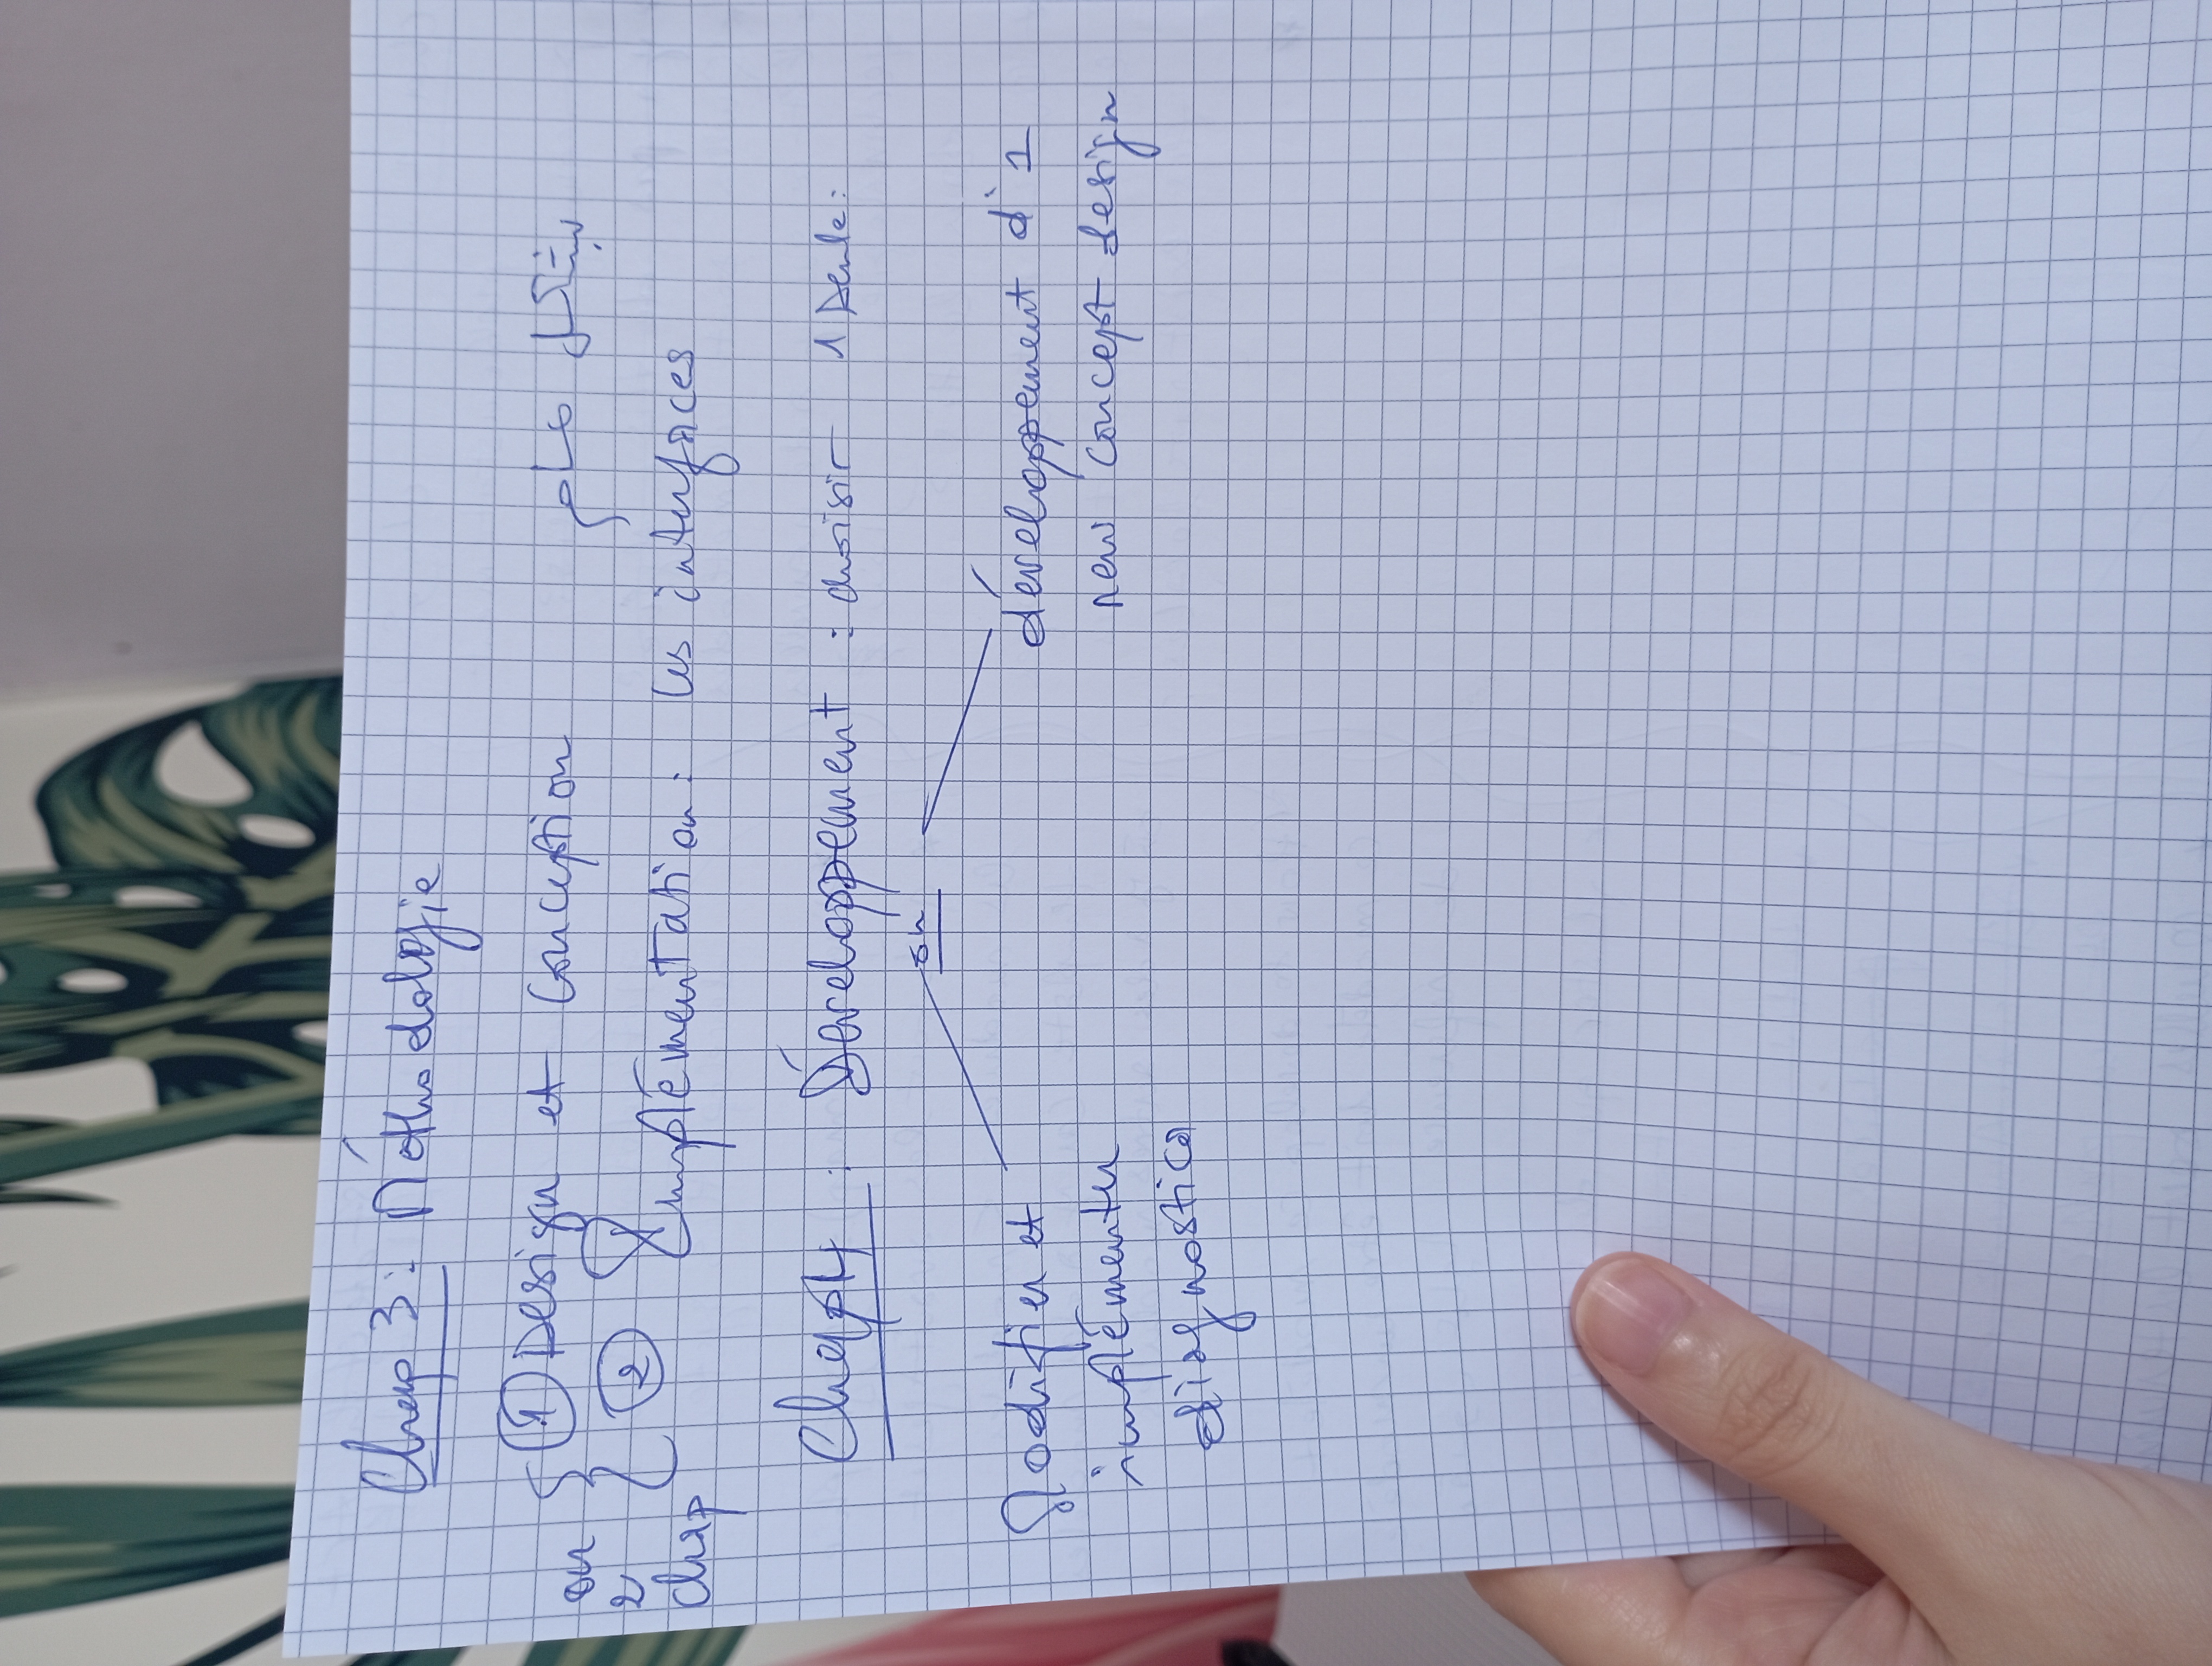 Chap 3: Méthodologie
① Design et Conception بشكل عام
ou 2 chap
② Implémentation: les interfaces
Chap4 : Développement : choisir 1 seule:
ou
Modifier et
implémenter
diagnostica
développement d'1
new concept design